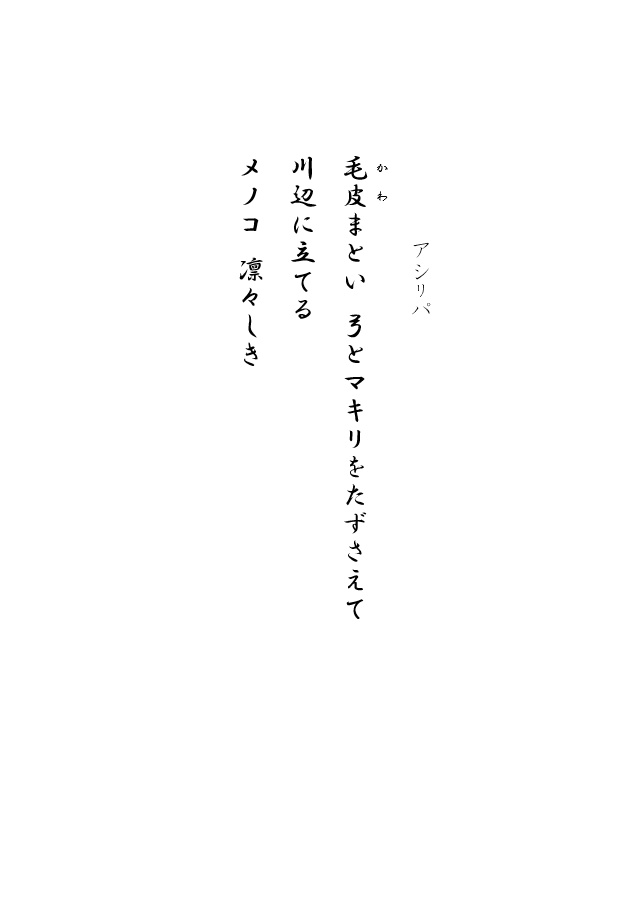 アシリパ
毛皮まとい　弓とマキリをたずさえて
かわ
川辺に立てる
メノコ　凛々しき